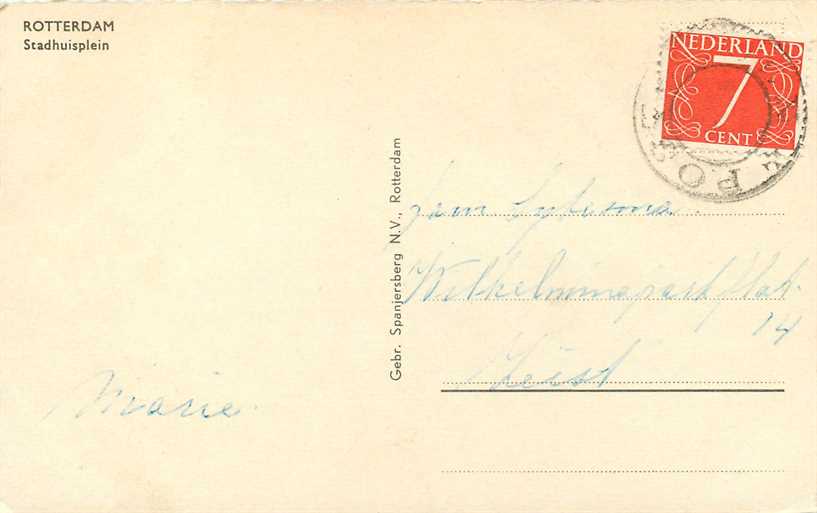 ROTTERDAM
Stadhuisplein
NEDERLAND
7
CENT
Gebr. Spanjersberg N.V., Rotterdam
Wilhelminapark flat.
14
Zeist
Marie.